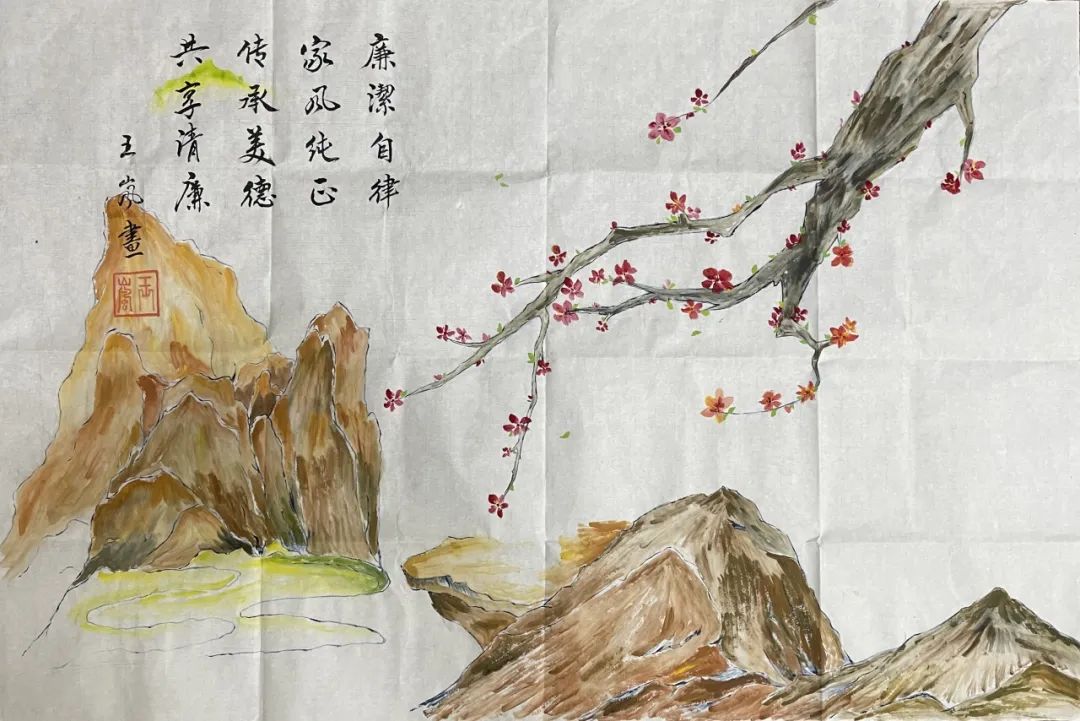 廉潔自律
家风纯正
传承美德
共享清廉
王岚畫
王嵐